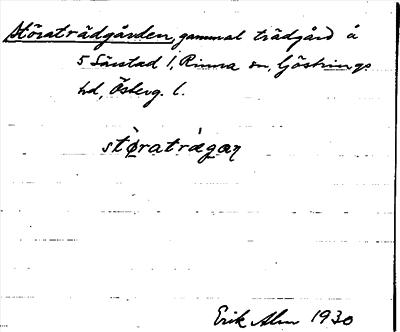 Störaträdgården, gammal trädgård å
5 Särstad 1, Rinna sn, Göstrings
hd, Österg. l.
störaträgaɳ
Erik Alm 1930